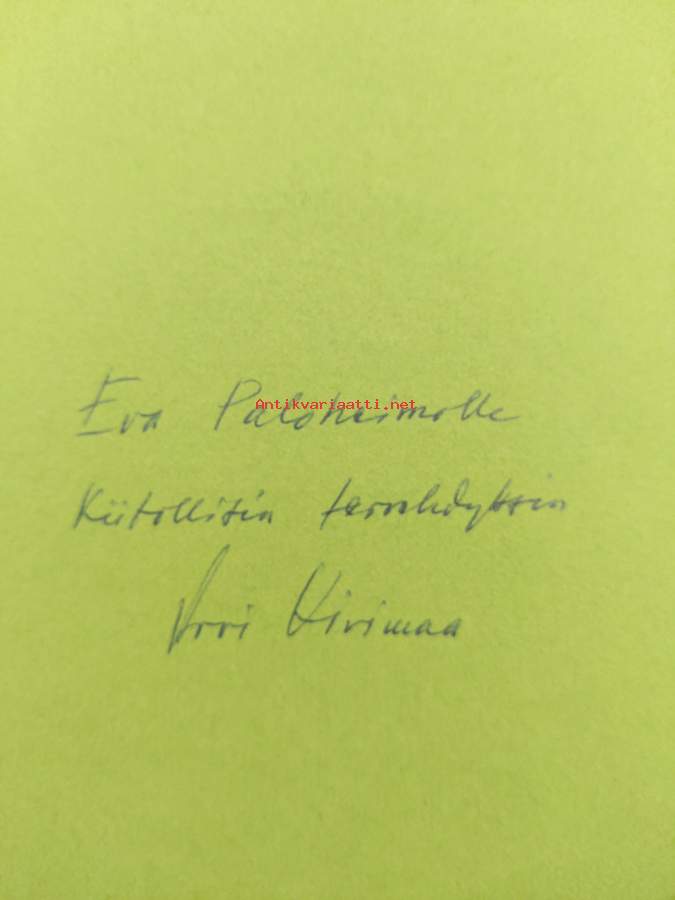 Eva Paloheimolle
Antikvariaatti.net
Kiitollisin tervehdyksin
Arvi Kivimaa